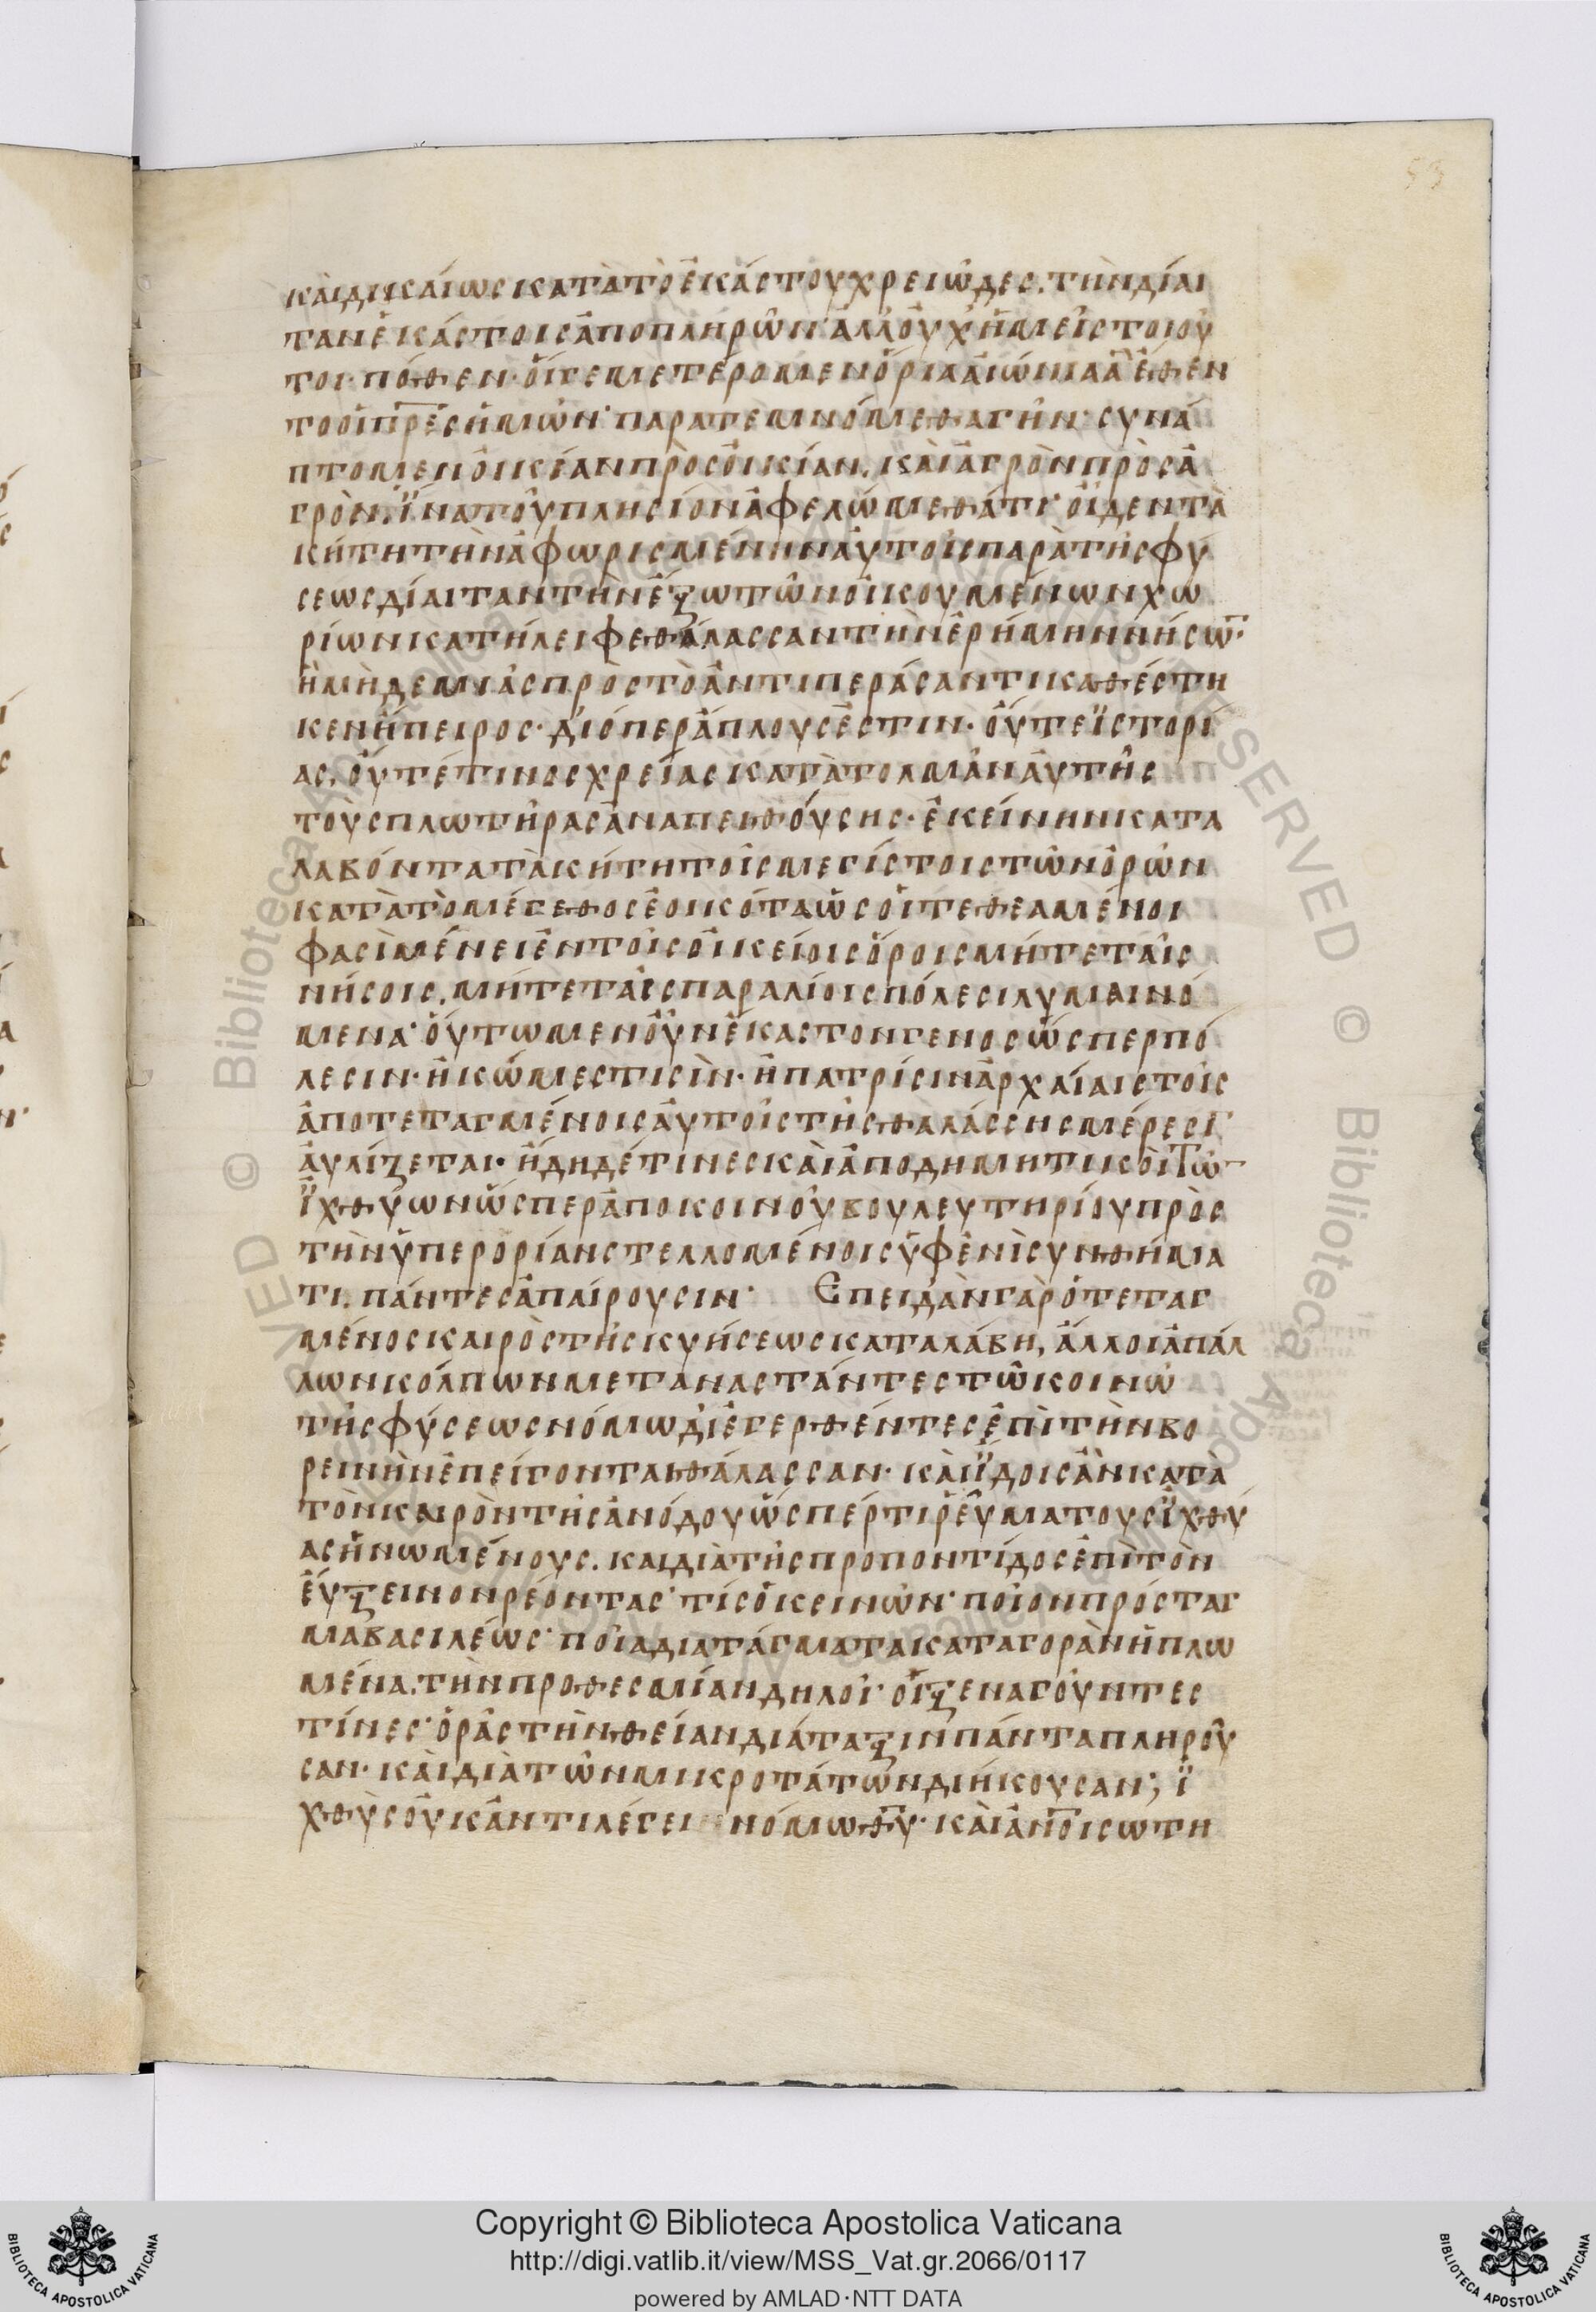 53
καὶ δικαίως κατὰ τὸ ἑκάστου χρειῶδες. τὴν δίαι
ταν ἑκάστοις ἀποπληρῶν· ἀλλ' οὐχ ἡμεῖς τοιοῦ
τοι· πόθεν· οἵ γε μετέρομεν ὅρια αἰώνια ἃ ἔθεν
το οἱ π̅ρ̅ε̅ς ἡμῶν· παρατεμνόμεθα γῆν· συνά
πτομεν οἰκίαν πρὸς οἰκίαν. καὶ ἀγρὸν πρὸς ἀ
γρόν. ἵνα τοῦ πλησίον ἀφελώμεθά τι· οἶδεν τὰ
κήτη τὴν ἀφωρισμένην αὐτοῖς παρὰ τῆς φύ
σεως δίαιταν τὴν ἔξω τῶν οἰκουμένων χω
ρίων κατήλειφε θάλασσαν τὴν ἐρήμην νήσω̅·
ᾗ μηδεμιᾶς πρὸς τὸ ἀντιπέρας ἀντικαθέστη
κεν ἤπειρος· διόπερ ἄπλους ἐστιν· οὔτε ἱστορί
ας. οὔτέ τινος χρείας κατατολμᾶν αὐτῆς
τοὺς πλωτῆρας ἀναπειθούσης· ἐκείνην κατα
λαβόντα τὰ κήτη τοῖς μεγίστοις τῶν ὀρῶν
κατὰ τὸ μέγεθος ἐοικότα ὡς οἵ τεθεαμένοι
φασὶ μένει ἐν τοῖς οἰκείοις ὅροις μήτε ταῖς
νήσοις. μήτε ταῖς παραλίοις πόλεσι λυμαινό
μενα· οὕτω μεν οὖν ἕκαστον γενος ὥσπερ πό
λεσιν· ἢ κώμες τισὶν· ἢ πατρίσιν ἀρχαίαις τοῖς
ἀποτεταγμένοις αὐτοῖς τῆς θαλάσσης μέρεσι
αὐλίζεται· ἤδη δέ τινες καὶ ἀποδημητικοὶ τῶ̅
ἰχθύων ὥσπερ ἀπο κοινοῦ βουλευτηρίου πρὸς
τὴν ὑπερορίαν στελλομένοις ὑφ' ἑνὶ συνθήμα
τι. πάντες ἀπαίρουσιν· Ἐπειδὰν γὰρ ὁ τεταγ
μένος καιρὸς τῆς κυήσεως καταλάβη, ἄλλοι ἀπ' ἄλ
λων κόλπων μεταναστάντες τῶ κοινῶ
τῆς φύσεως νόμω διεγερθέντες ἐπὶ τὴν βο
ρεινὴν ἐπείγονται θάλασσαν· καὶ ἴδοις ἂν κατὰ
τὸν καιρὸν τῆς ἀνόδου ὥσπέρ τι ῥεῦμα τοὺς ἰχθύ
ας ἡνωμένους. και διὰ τῆς προποντίδος ἐπὶ τὸν
εὔξεινον ῥέοντας· τίς ὁ κεινῶν· ποῖον πρόσταγ
μα βασιλέως· ποῖα διατάγματα κατ' αγορὰν ἡπλω
μένα. τὴν προθεσμίαν δηλοῖ· οἱ ξεναγοῦντες
τίνες· ὁρᾶς τὴν θείαν διάταξιν πάντα πληροῦ
σαν· καὶ διὰ τῶν μικροτάτων διήκουσαν; ἰ
χθὺς οὐκ ἀντιλέγει νόμω θ̅υ̅· καὶ ἀν̅ο̅ι σωτη
Copyright © Biblioteca Apostolica Vaticana
http://digi.vatlib.it/view/MSS_Vat.gr.2066/0117
powered by AMLAD·NTT DATA